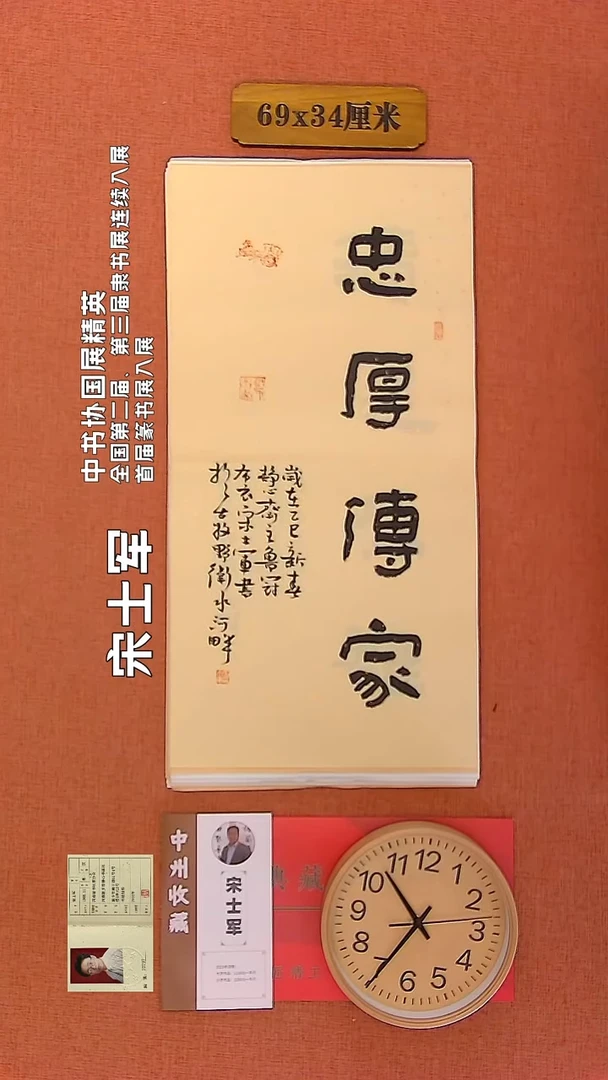 69x34厘米
忠厚傳家
歲在乙巳新春
静心齋主魯冠
布衣宋士軍書
於古牧野衛水河畔
中书协国展精英
全国第二届、第三届隶书展连续入展
首届篆书展入展
宋士军
宋士军
典藏
12
1
2
3
4
5
6
7
8
9
10
11